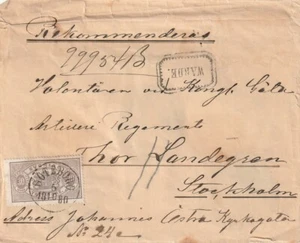 Rekommenderas
99954B
WÄRDE.
Volontären vid Kongl. Göta
Artilleri Regemente
Thor Sandegren
Stockholm
GÖTEBORG
Adress Johannes Östra Kyrkogata
No 24